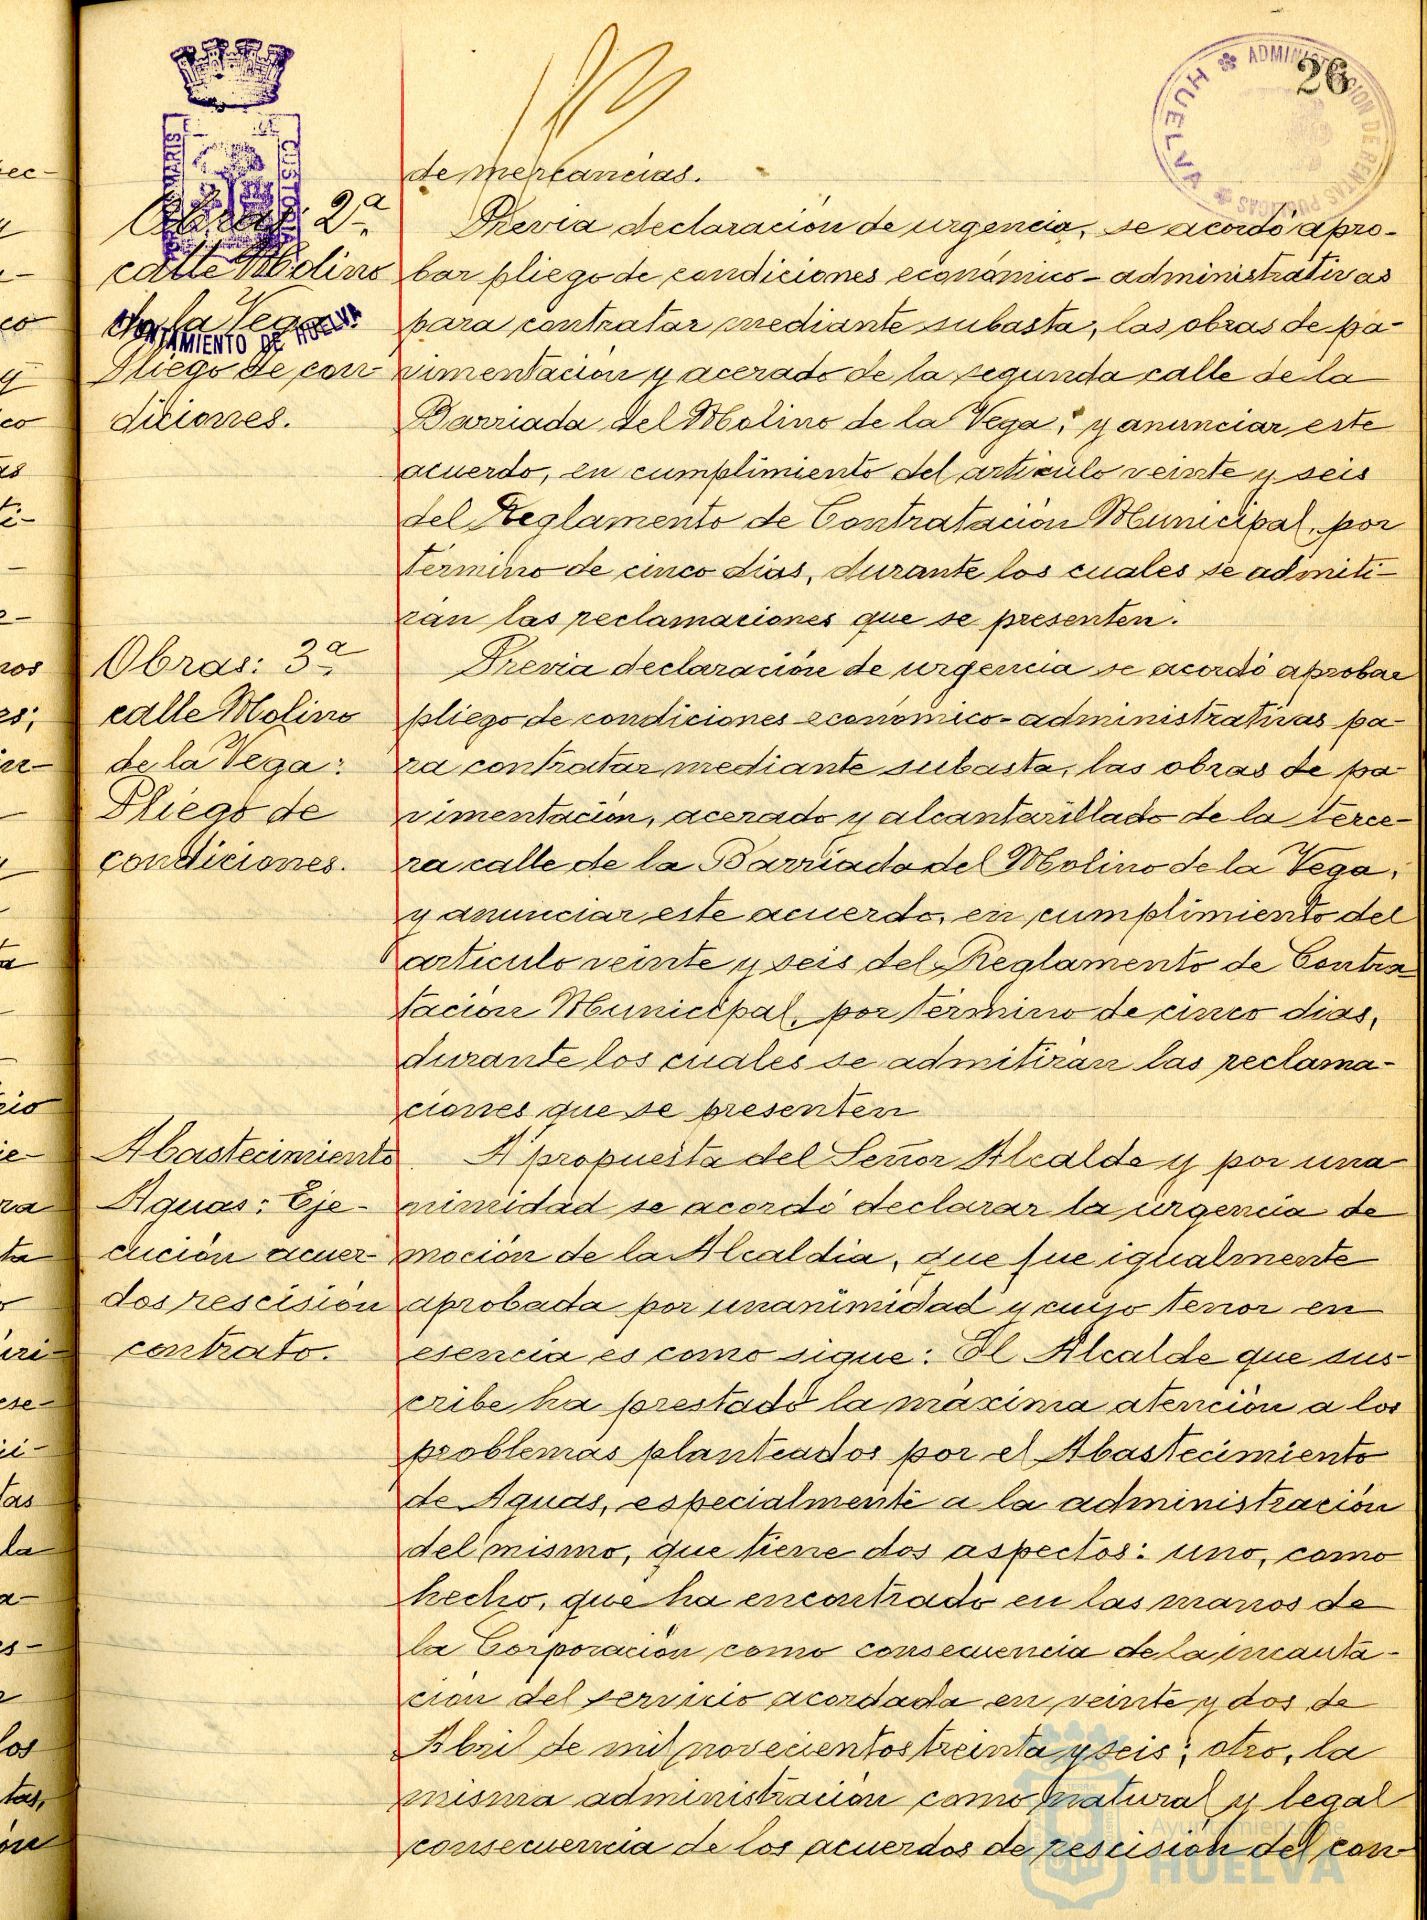 26
ADMINISTRACION DE RENTAS PUBLICAS
HUELVA
MARIS
CUSTODIA
AYUNTAMIENTO DE HUELVA
de mercancias.
Obras: 2ª
calle Molino
de la Vega:
Pliego de con-
diciones.
Previa declaración de urgencia, se acordó apro-
bar pliego de condiciones económico-administrativas
para contratar mediante subasta, las obras de pa-
vimentación y acerado de la segunda calle de la
Barriada del Molino de la Vega, y anunciar este
acuerdo, en cumplimiento del articulo veinte y seis
del Reglamento de Contratación Municipal, por
término de cinco dias, durante los cuales se admiti-
rán las reclamaciones que se presenten.
Obras: 3ª
calle Molino
de la Vega:
Pliego de
condiciones.
Previa declaración de urgencia se acordó aprobar
pliego de condiciones económico-administrativas pa-
ra contratar mediante subasta, las obras de pa-
vimentación, acerado y alcantarillado de la terce-
ra calle de la Barriada del Molino de la Vega,
y anunciar este acuerdo, en cumplimiento del
articulo veinte y seis del Reglamento de Contra-
tación Municipal, por término de cinco dias,
durante los cuales se admitirán las reclama-
ciones que se presenten
Abastecimiento
Aguas: Eje-
cución acuer-
dos rescisión
contrato.
A propuesta del Señor Alcalde y por una-
nimidad se acordó declarar la urgencia de
moción de la Alcaldia, que fue igualmente
aprobada por unanimidad y cuyo tenor en
esencia es como sigue: El Alcalde que sus-
cribe ha prestado la máxima atención a los
problemas planteados por el Abastecimiento
de Aguas, especialmente a la administración
del mismo, que tiene dos aspectos: uno, como
hecho, que ha encontrado en las manos de
la Corporación como consecuencia de la incauta-
ción del servicio acordada en veinte y dos de
Abril de mil novecientos treinta y seis; otro, la
misma administración como natural y legal
consecuencia de los acuerdos de rescisión del con-
Ayuntamiento de
HUELVA